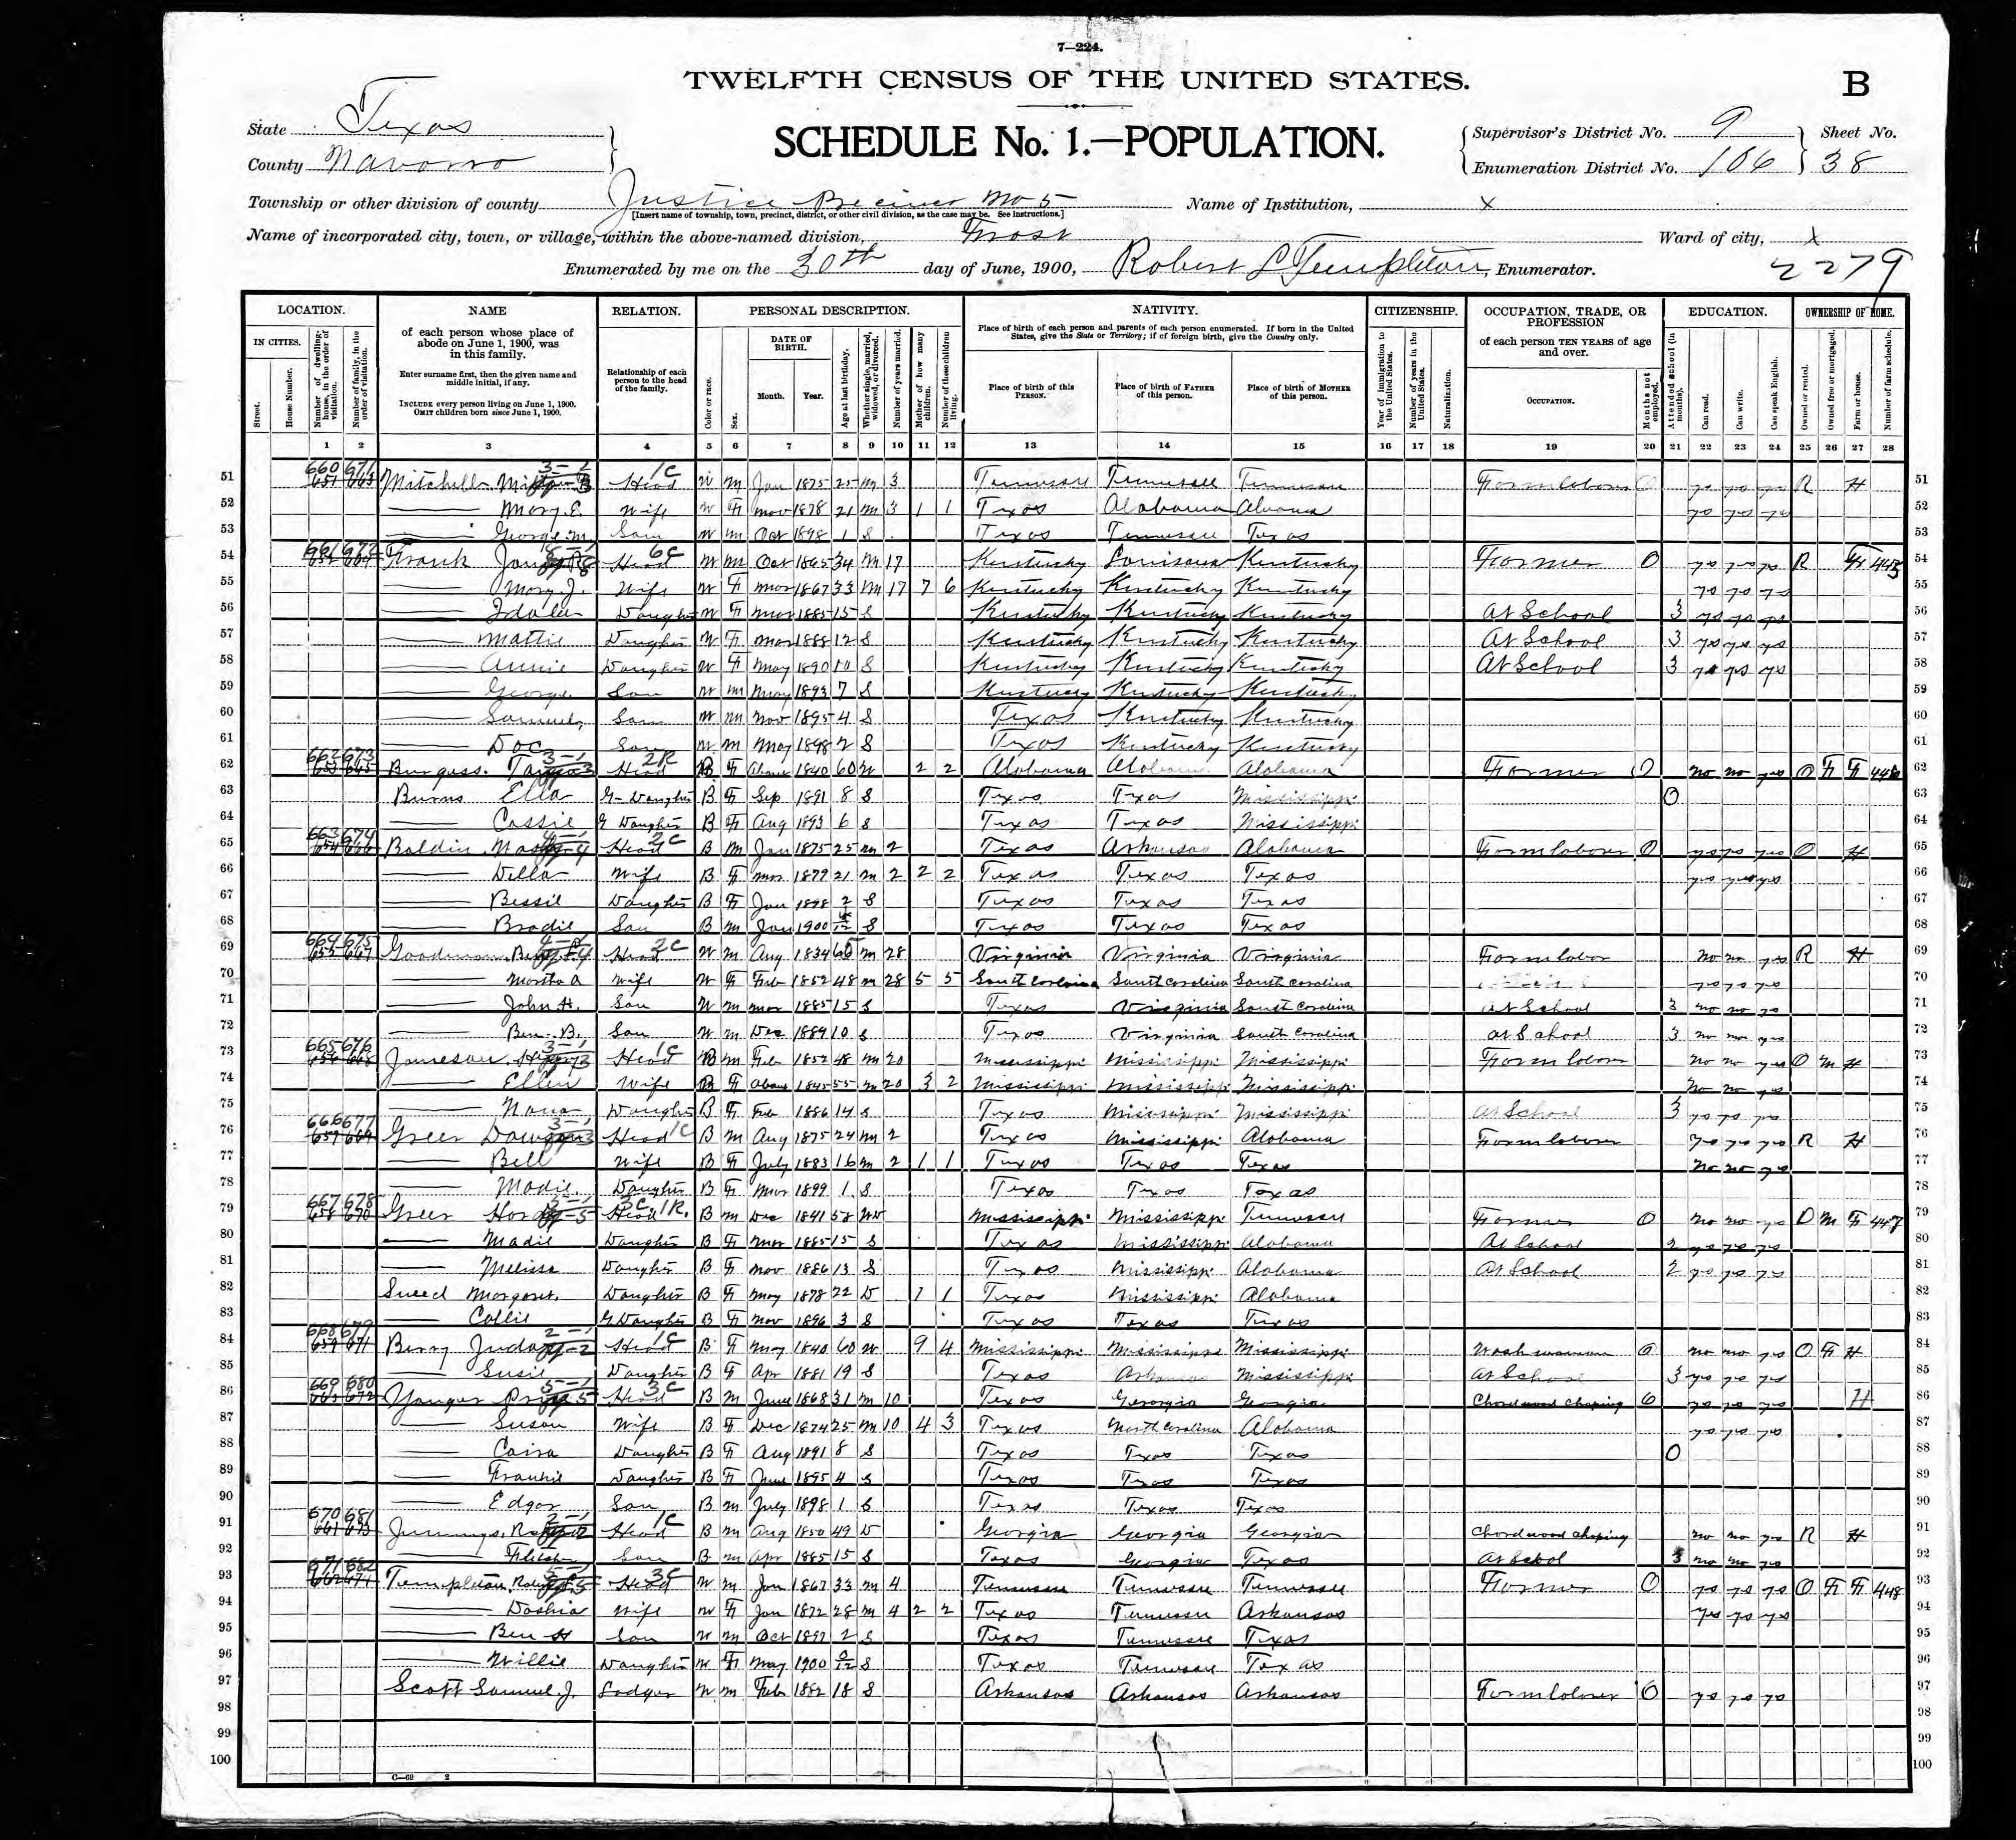 7—224.
TWELFTH CENSUS OF THE UNITED STATES.
B
State Texas
County Navarro
SCHEDULE No. 1.—POPULATION.
Supervisor's District No. 9
Enumeration District No. 106
Sheet No. 38
Township or other division of county Justice Precinct No 5
[Insert name of township, town, precinct, district, or other civil division, as the case may be. See instructions.]
Name of Institution, x
Name of incorporated city, town, or village, within the above-named division, Frost
Ward of city, x
Enumerated by me on the 30th day of June, 1900, Robert L Templeton, Enumerator.
2279
LOCATION. NAME RELATION. PERSONAL DESCRIPTION. NATIVITY. CITIZENSHIP. OCCUPATION, TRADE, OR PROFESSION EDUCATION. OWNERSHIP OF HOME.
IN CITIES.
Street.
House Number.
Number of dwelling-house, in the order of visitation.
Number of family, in the order of visitation.
of each person whose place of abode on June 1, 1900, was in this family.
Enter surname first, then the given name and middle initial, if any.
INCLUDE every person living on June 1, 1900.
OMIT children born since June 1, 1900.
Relationship of each person to the head of the family.
Color or race.
Sex.
DATE OF BIRTH.
Month. Year.
Age at last birthday.
Whether single, married, widowed, or divorced.
Number of years married.
Mother of how many children.
Number of these children living.
Place of birth of each person and parents of each person enumerated. If born in the United States, give the State or Territory; if of foreign birth, give the Country only.
Place of birth of this PERSON.
Place of birth of FATHER of this person.
Place of birth of MOTHER of this person.
Year of immigration to the United States.
Number of years in the United States.
Naturalization.
of each person TEN YEARS of age and over.
OCCUPATION.
Months not employed.
Attended school (in months).
Can read.
Can write.
Can speak English.
Owned or rented.
Owned free or mortgaged.
Farm or house.
Number of farm schedule.
1 2 3 4 5 6 7 8 9 10 11 12 13 14 15 16 17 18 19 20 21 22 23 24 25 26 27 28
51 660 671 Mitchell Head W M Jan 1875 25 M 3 Tennessee Tennessee Tennessee Farm laborer yes yes yes R H 51
52 Mary E. Wife W F Nov 1878 21 M 3 1 1 Texas Alabama yes yes yes 52
53 George M Son W M Oct 1898 1 S Texas Tennessee Texas 53
54 661 672 Frank Head W M Oct 1865 34 M 17 Kentucky Louisiana Kentucky Farmer 0 yes yes yes R F 54
55 Mary J. Wife W F Mar 1867 33 M 17 7 6 Kentucky Kentucky Kentucky yes yes yes 55
56 Daughter W F Mar 1885 15 S Kentucky Kentucky Kentucky At School 3 yes yes yes 56
57 Mattie Daughter W F Mar 1888 12 S Kentucky Kentucky Kentucky At School 3 yes yes yes 57
58 Annie Daughter W F May 1890 10 S Kentucky Kentucky Kentucky At School 3 yes yes yes 58
59 George Son W M May 1893 7 S Kentucky Kentucky Kentucky 59
60 Samuel Son W M Nov 1895 4 S Texas Kentucky Kentucky 60
61 Doc Son W M May 1898 2 S Texas Kentucky Kentucky 61
62 662 673 Burgess Head B F 1840 60 W 2 2 Alabama Alabama Alabama Farmer 0 no no yes O F F 62
63 Burns Ella G-Daughter B F Sep 1891 8 S Texas Texas Mississippi 0 63
64 Cassie G Daughter B F Aug 1893 6 S Texas Texas Mississippi 64
65 663 674 Head B M Jan 1875 25 M 2 Texas Arkansas Alabama Farm laborer 0 yes yes yes O H 65
66 Della Wife B F Mar 1879 21 M 2 2 2 Texas Texas Texas yes yes yes 66
67 Bessie Daughter B F Jan 1898 2 S Texas Texas Texas 67
68 Bradie Son B M Jan 1900 S Texas Texas Texas 68
69 664 675 Goodman Head W M Aug 1834 65 M 28 Virginia Virginia Virginia Farm labor no no yes R H 69
70 Martha A Wife W F Feb 1852 48 M 28 5 5 South Carolina South Carolina South Carolina yes yes yes 70
71 John H. Son W M Mar 1885 15 S Texas Virginia South Carolina At School 3 no no yes 71
72 Ben B. Son W M Dec 1889 10 S Texas Virginia South Carolina At School 3 no no yes 72
73 665 676 Jameson Head B M Feb 1852 48 M 20 Mississippi Mississippi Mississippi Farm labor no no yes O M H 73
74 Ellen Wife B F 1845 55 M 20 3 2 Mississippi Mississippi Mississippi no no yes 74
75 Daughter B F Feb 1886 14 S Texas Mississippi Mississippi At School 3 yes yes yes 75
76 666 677 Greer Head B M Aug 1875 24 M 2 Texas Mississippi Alabama Farm laborer yes yes yes R H 76
77 Bell Wife B F July 1883 16 M 2 1 1 Texas Texas Texas no no yes 77
78 Madie Daughter B F Mar 1899 1 S Texas Texas Texas 78
79 667 678 Greer Head B M Dec 1841 58 Wd Mississippi Mississippi Tennessee Farmer 0 no no yes O M F 447 79
80 Madie Daughter B F Mar 1885 15 S Texas Mississippi Alabama At School 2 yes yes yes 80
81 Melissa Daughter B F Nov 1886 13 S Texas Mississippi Alabama At School 2 yes yes yes 81
82 Sneed Margaret Daughter B F May 1878 22 D 1 1 Texas Mississippi Alabama 82
83 Callie G Daughter B F Nov 1896 3 S Texas Texas Texas 83
84 668 679 Berry Head B F May 1840 60 W 9 4 Mississippi Mississippi Mississippi Wash woman 0 no no yes O F H 84
85 Susie Daughter B F Apr 1881 19 S Texas Arkansas Mississippi At School 3 yes yes yes 85
86 669 680 Head B M June 1868 31 M 10 Texas Georgia Georgia Chord wood choping 6 yes yes yes H 86
87 Susan Wife B F Dec 1874 25 M 10 4 3 Texas North Carolina Alabama yes yes yes 87
88 Daughter B F Aug 1891 8 S Texas Texas Texas 0 88
89 Frankie Daughter B F June 1895 4 S Texas Texas Texas 89
90 Edgar Son B M July 1898 1 S Texas Texas Texas 90
91 670 681 Jennings Head B M Aug 1850 49 D Georgia Georgia Georgia Chord wood choping no no yes R H 91
92 Son B M Apr 1885 15 S Texas Georgia Texas At School 3 no no yes 92
93 671 682 Templeton Head W M Jan 1867 33 M 4 Tennessee Tennessee Tennessee Farmer 0 yes yes yes O F F 448 93
94 Doshia Wife W F Jan 1872 28 M 4 2 2 Texas Tennessee Arkansas yes yes yes 94
95 Ben H Son W M Oct 1897 2 S Texas Tennessee Texas 95
96 Willie Daughter W F May 1900 0/12 S Texas Tennessee Texas 96
97 Scott Samuel J. Lodger W M Feb 1882 18 S Arkansas Arkansas Arkansas Farm laborer 6 yes yes yes 97
98 98
99 99
100 100
C—69 2